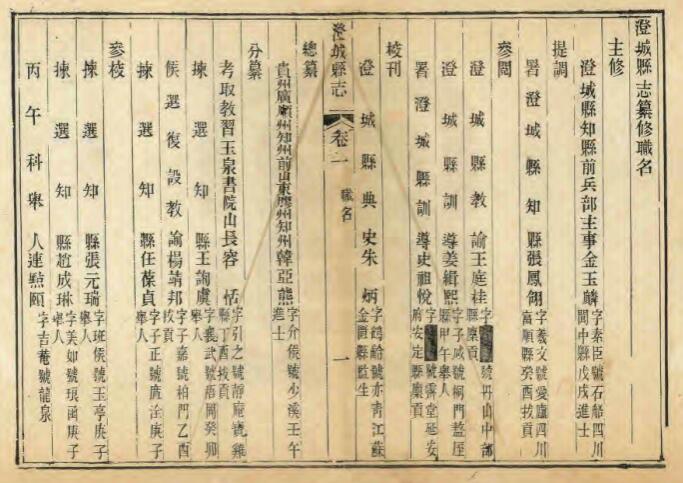 澄城縣志纂修職名
主修
澄城縣知縣前兵部主事金玉麟字素臣號石船四川閬中縣戊戌進士
提調
署澄城縣知縣張鳳翎字羲文號愛廬四川富順縣癸酉拔貢
參閱
澄城縣教諭王庭桂字號丹山中部縣廩貢
澄城縣訓導姜緝熙字子咸號桐門盩厔縣甲午舉人
署澄城縣訓導史祖悅字號霽堂延安府安定縣廩貢
校刊
澄城縣典史朱炳字鶴給號亦青江蘇金匱縣監生
澄城縣志
卷一
職名
一
總纂
貴州廣順州知州前山東膠州知州韓亞熊字介侯號少溪壬午進士
分纂
考取教習玉泉書院山長容恬字引之號靜庵寶雞縣丁酉拔貢
揀選知縣王詢虞字襄武號蓓周癸卯舉人
候選復設教諭楊靖邦字子嘉號柏門乙酉拔貢
揀選知縣任葆貞字子正號廣淦庚子舉人
參校
揀選知縣張元瑞字班侯號玉亭庚子舉人
揀選知縣趙成琳字美如號琅函庚子舉人
丙午科舉人連點頤字吉菴號龍泉